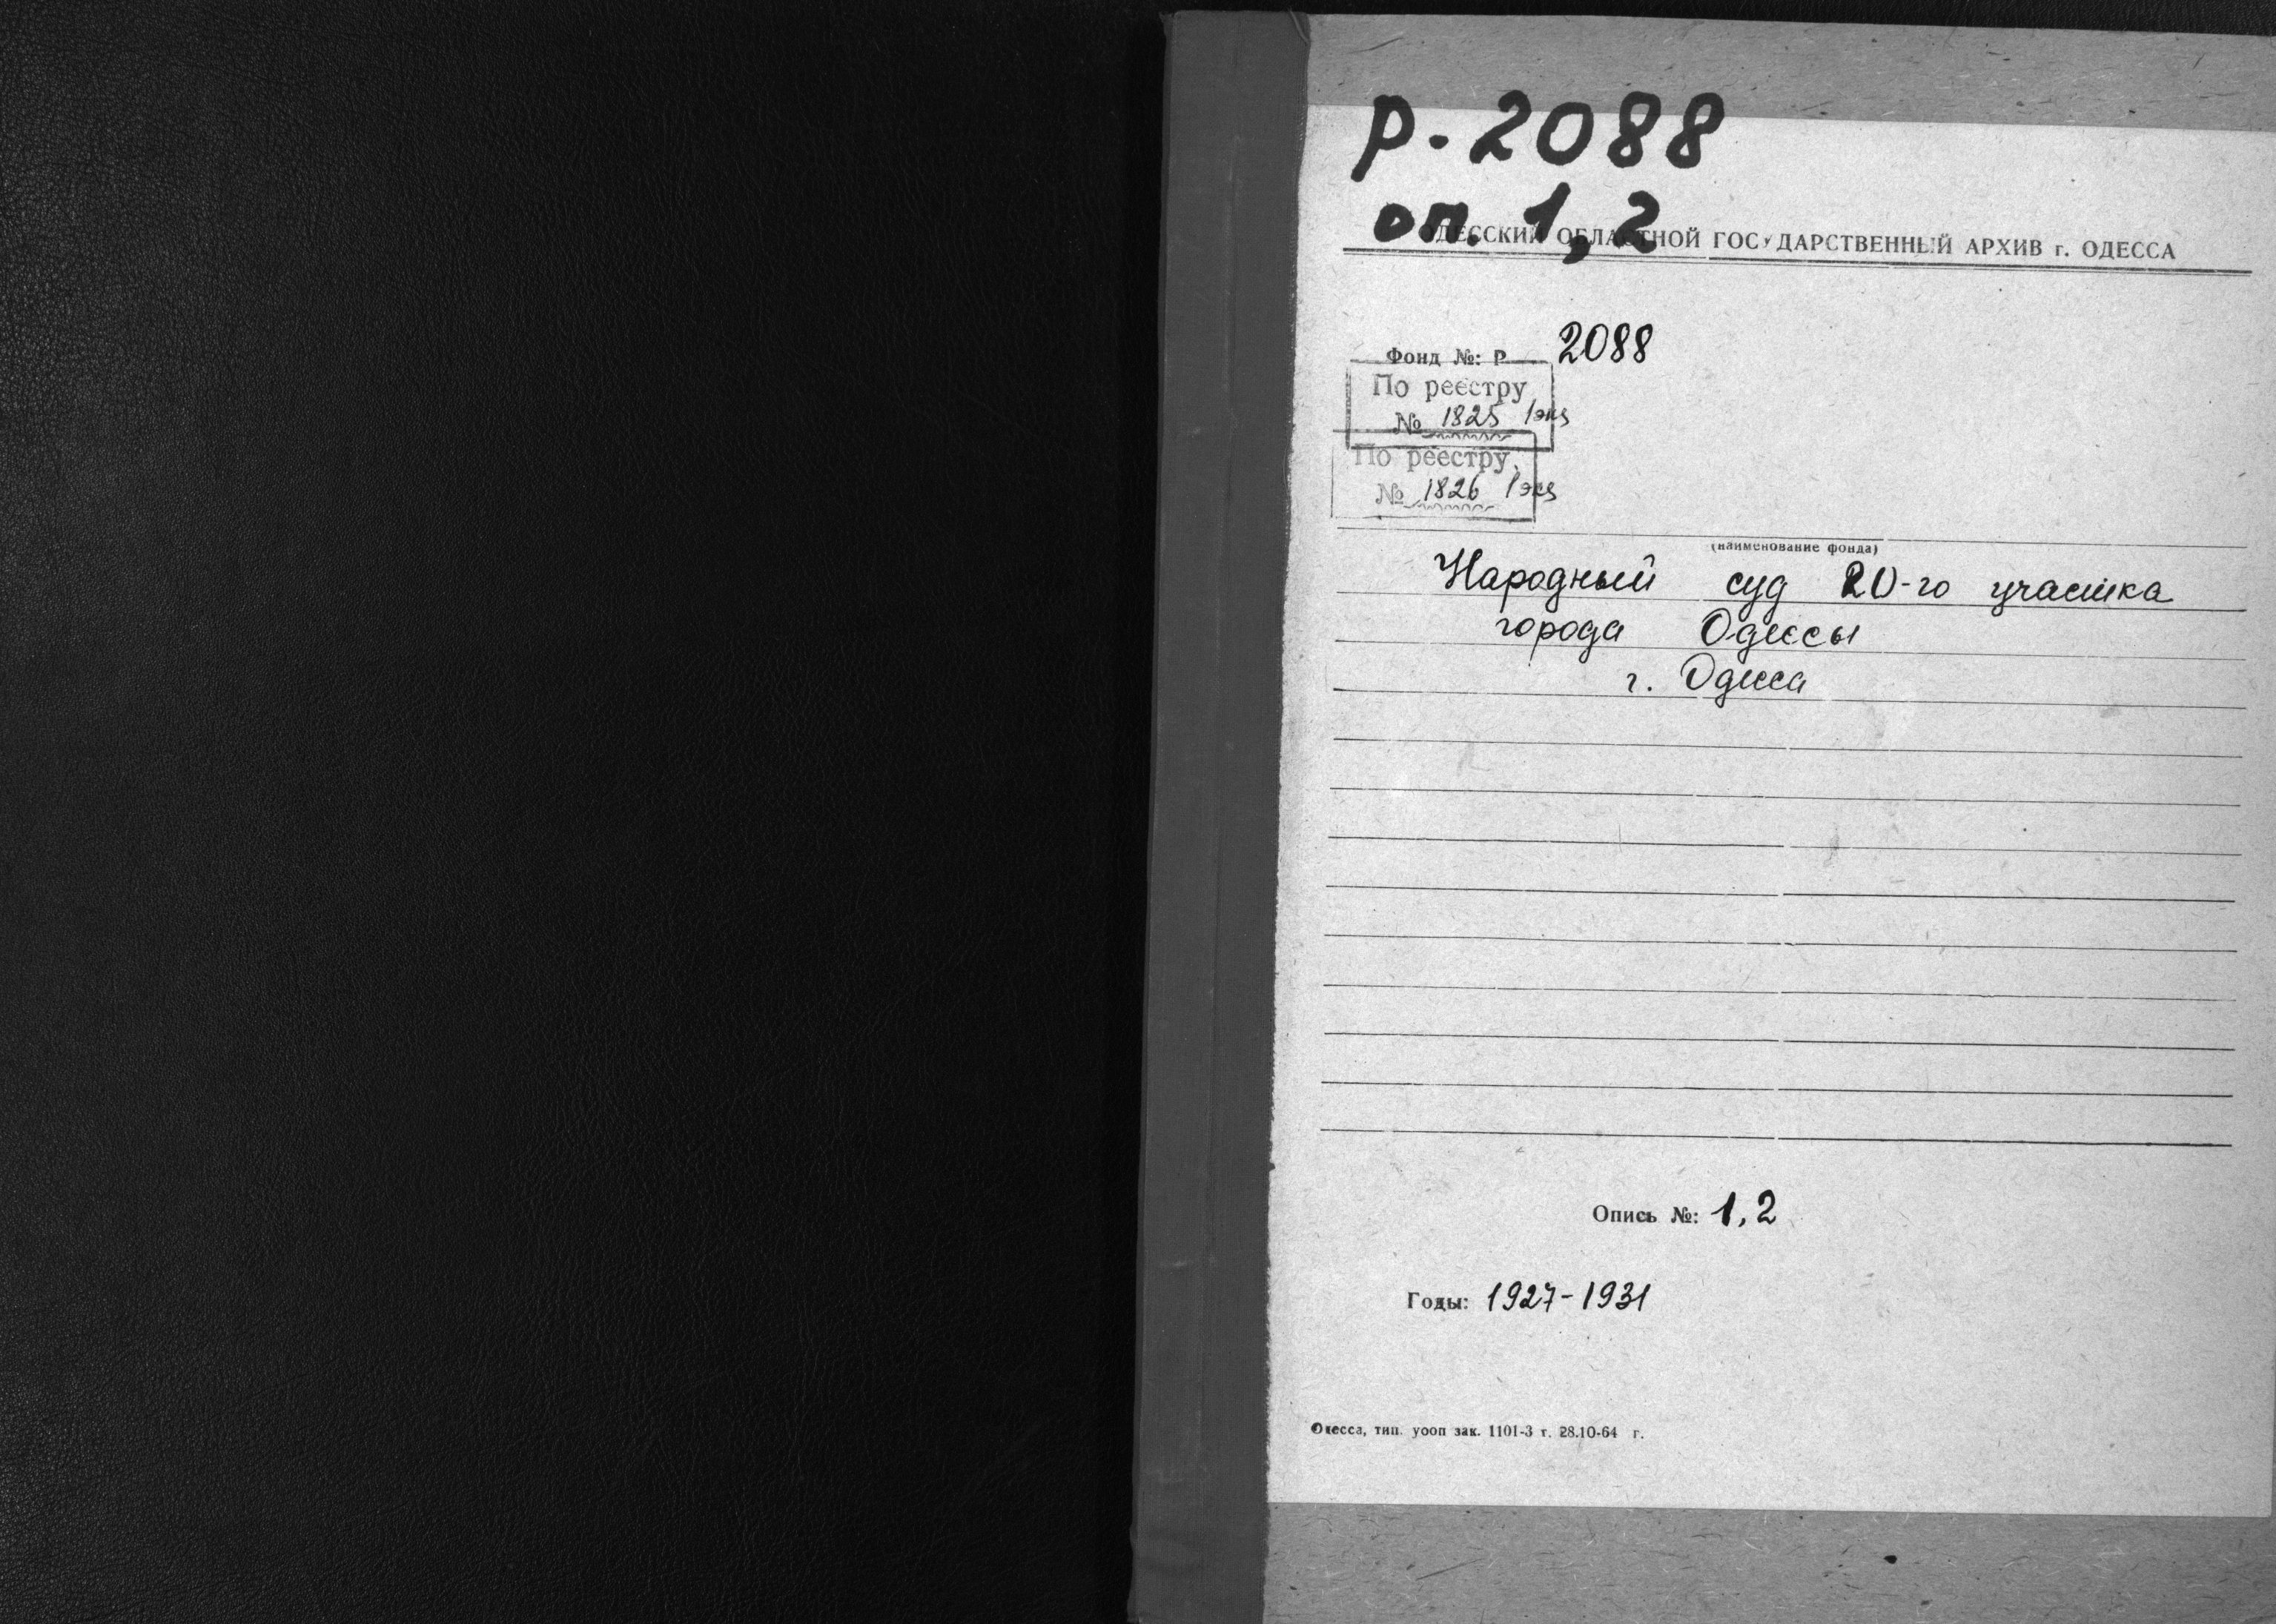 Р-2088
оп. 1, 2
ОДЕССКИЙ ОБЛАСТНОЙ ГОСУДАРСТВЕННЫЙ АРХИВ г. ОДЕССА
Фонд №: Р 2088
По реестру
№ 1825 1экз
По реестру
№ 1826 1экз
(наименование фонда)
Народный суд 20-го участка
города Одессы
г. Одесса
Опись №: 1, 2
Годы: 1927-1931
Одесса, тип. уооп зак. 1101-3 т. 28.10-64 г.